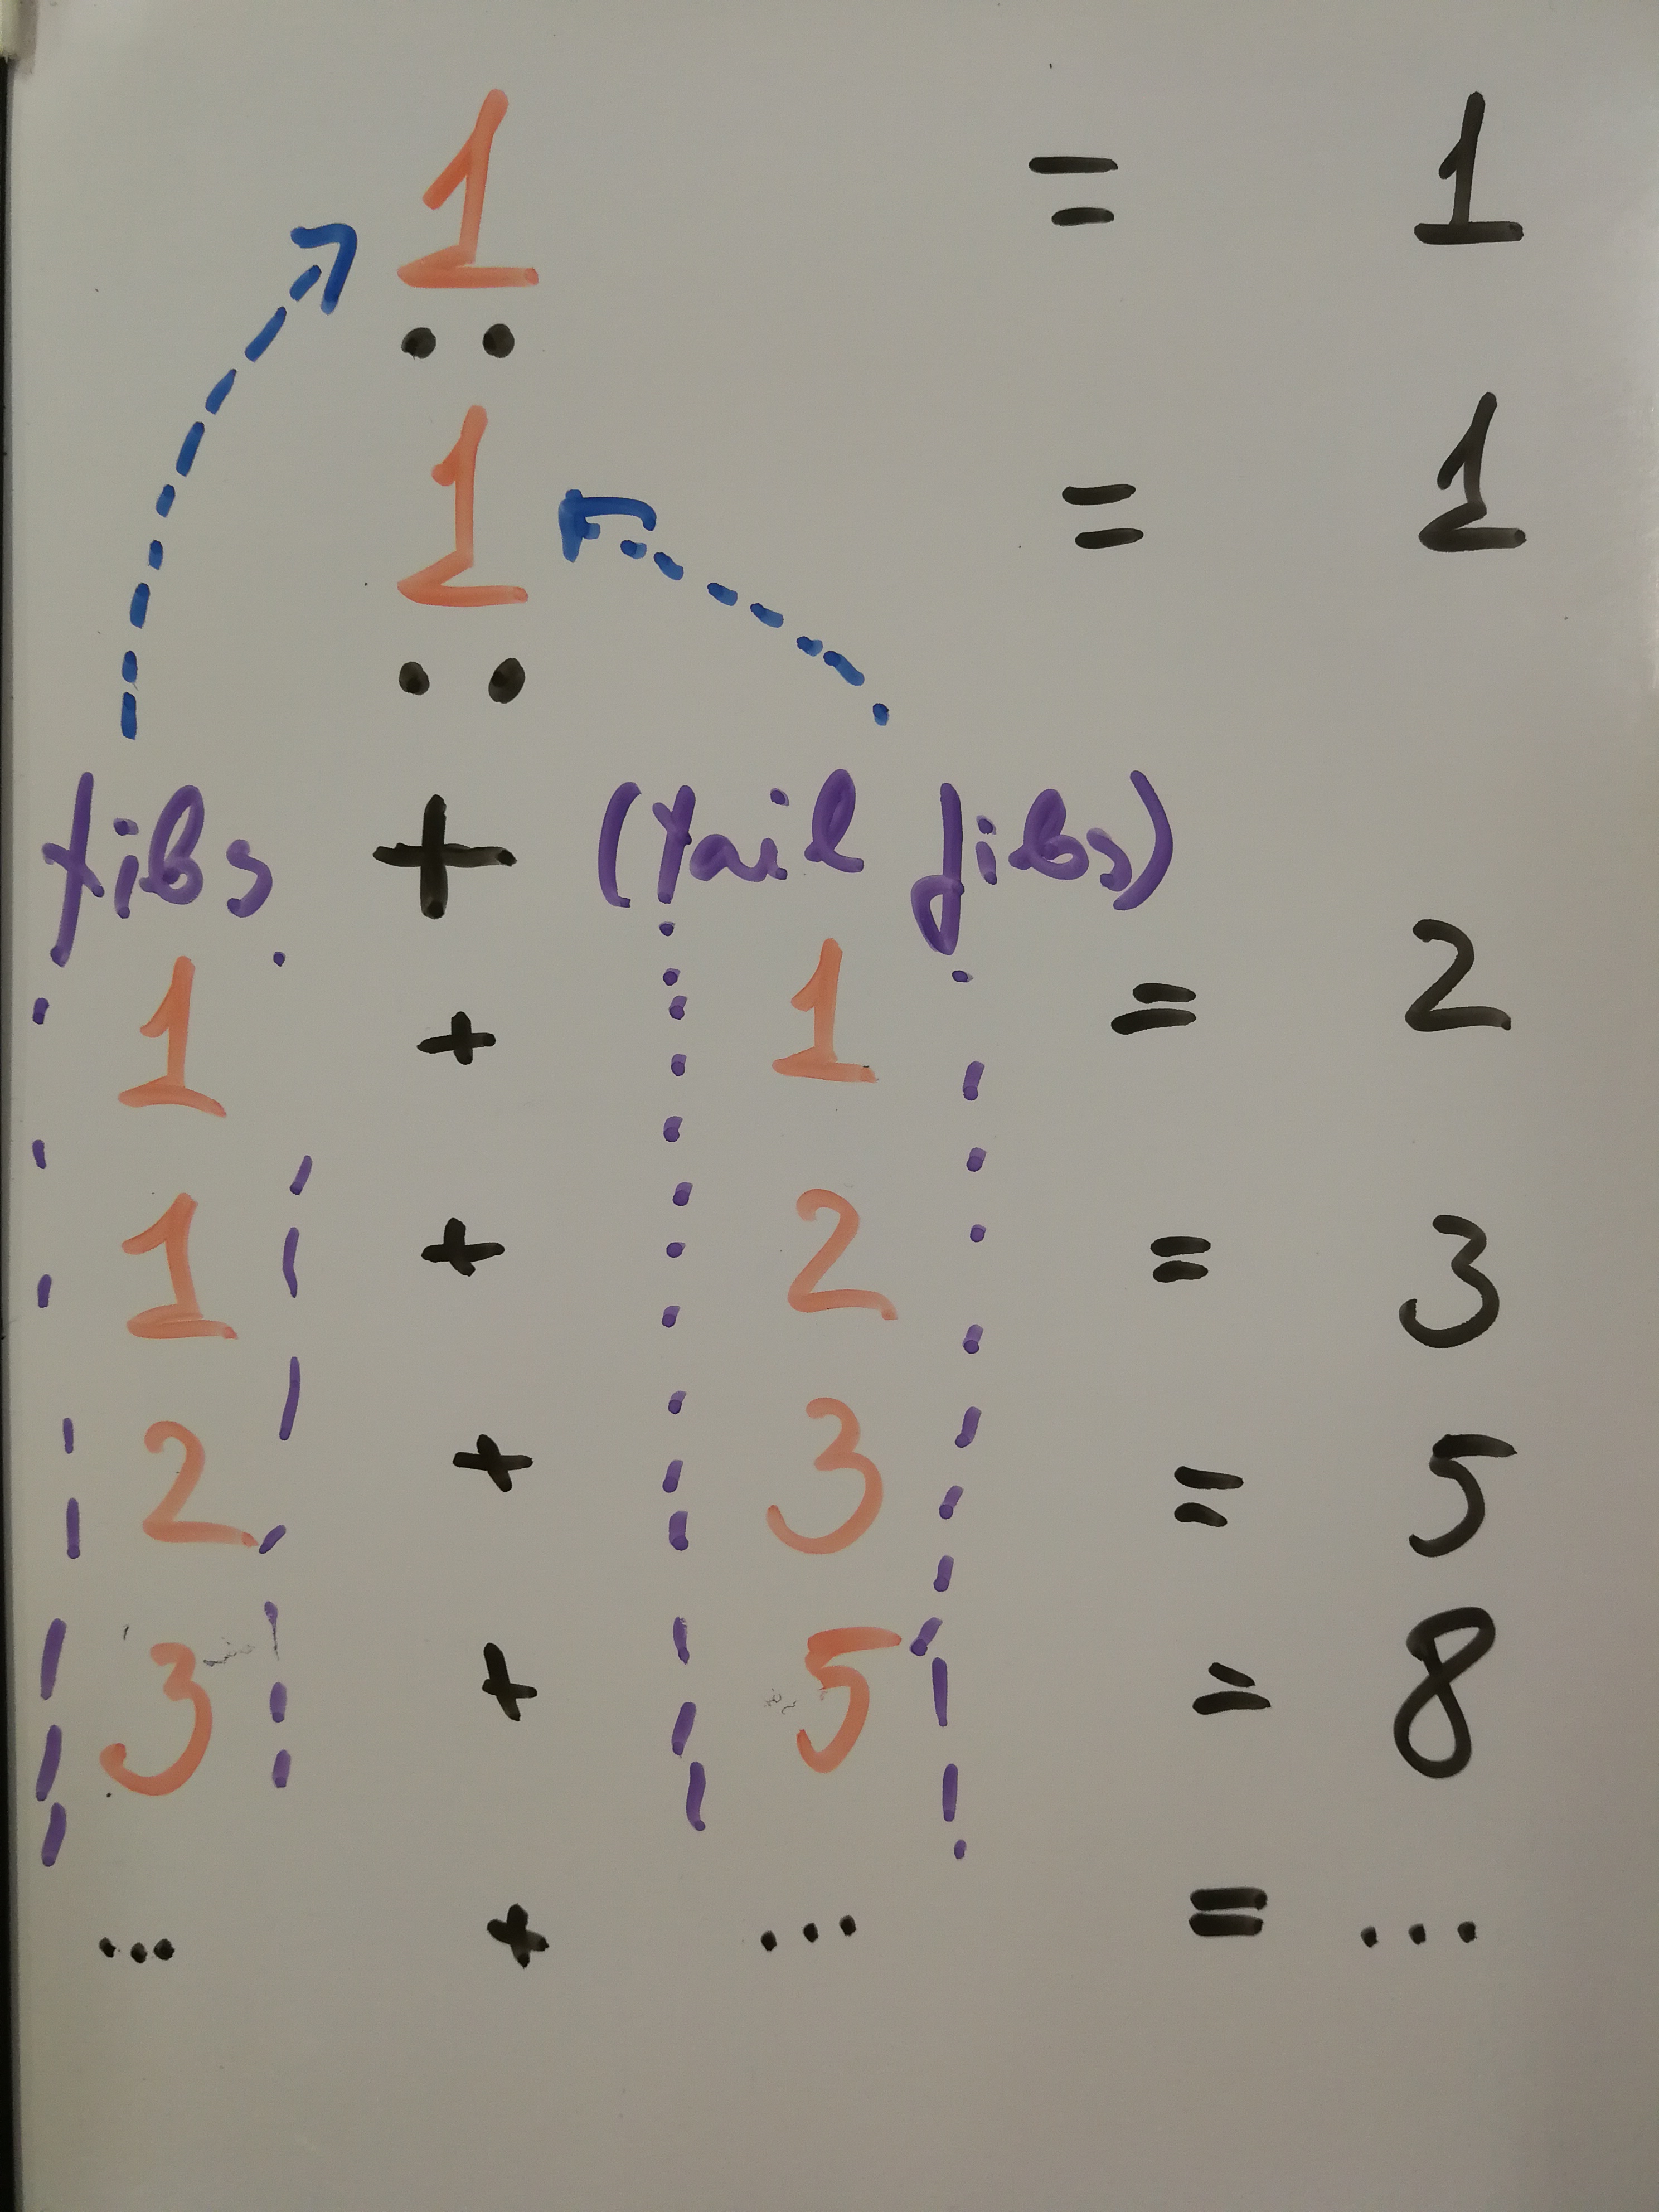 1 = 1
..
1 = 1
..
fibs + (tail fibs)
1 + 1 = 2
1 + 2 = 3
2 + 3 = 5
3 + 5 = 8
... + ... = ...